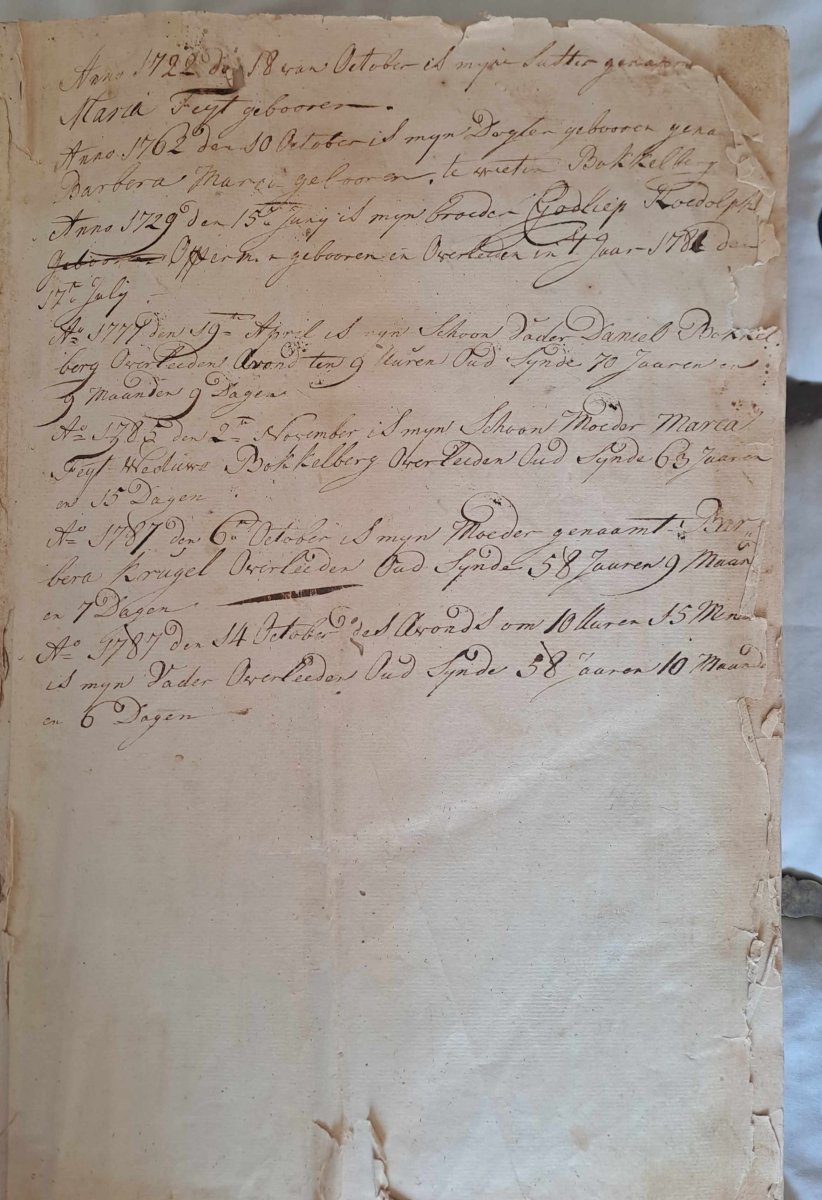 Anno 1722 den 18 van October is myn Suster genaamt
Maria Feyt gebooren.
Anno 1762 den 10 October is myn Dogter gebooren gena
Barbera Maria gebooren. te weeten Bokkelberg
Anno 1729 den 15en Juny is myn broeder Godliep Roedolph
gebooren Opperman gebooren en Overleeden in 't Jaar 1781 den
17en July.
Ao 1777 den 19en April is myn Schoon Vader Daniel Bokkel
berg Overleeden Avond ten 9 Uuren Oud Synde 70 Jaaren en
9 Maanden 9 Dagen
Ao 1785 den 2en November is myn Schoon Moeder Maria
Feyt Weduwe Bokkelberg Overleeden Oud Synde 63 Jaaren
en 15 Dagen
Ao 1787 den 6en October is myn Moeder genaamt Bar-
bera Krugel Overleeden Oud Synde 58 Jaaren 9 Maan
en 7 Dagen
Ao 1787 den 14 October des Avonds om 10 Uuren 15 Menu
is myn Vader Overleeden Oud Synde 58 Jaaren 10 Maande
en 6 Dagen